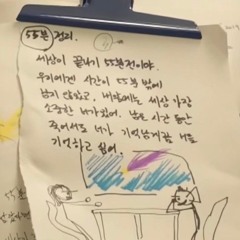 55분 정리.
세상이 끝나기 55분전이야.
우리에겐 시간이 55분 밖에
남지 않았고, 내 앞에는 세상 가장
소중한 너가 있어. 남은 시간 동안
죽어서도 너가 기억남게끔 너를
기억하고 싶어.
55분